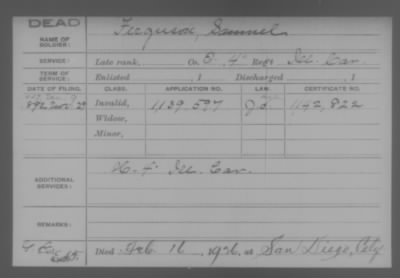 DEAD
NAME OF SOLDIER:
Ferguson, Samuel
SERVICE:
Late rank, Co. Reg't Ill. Cav.
TERM OF SERVICE:
Enlisted , 1 Discharged , 1
DATE OF FILING. CLASS. APPLICATION NO. LAW. CERTIFICATE NO.
1892 Nov. Invalid, 1,139,597 1,142,822
Widow,
Minor,
ADDITIONAL SERVICES:
Ill. Cav.
REMARKS:
Died Feb. 16, 1926, at San Diego, City